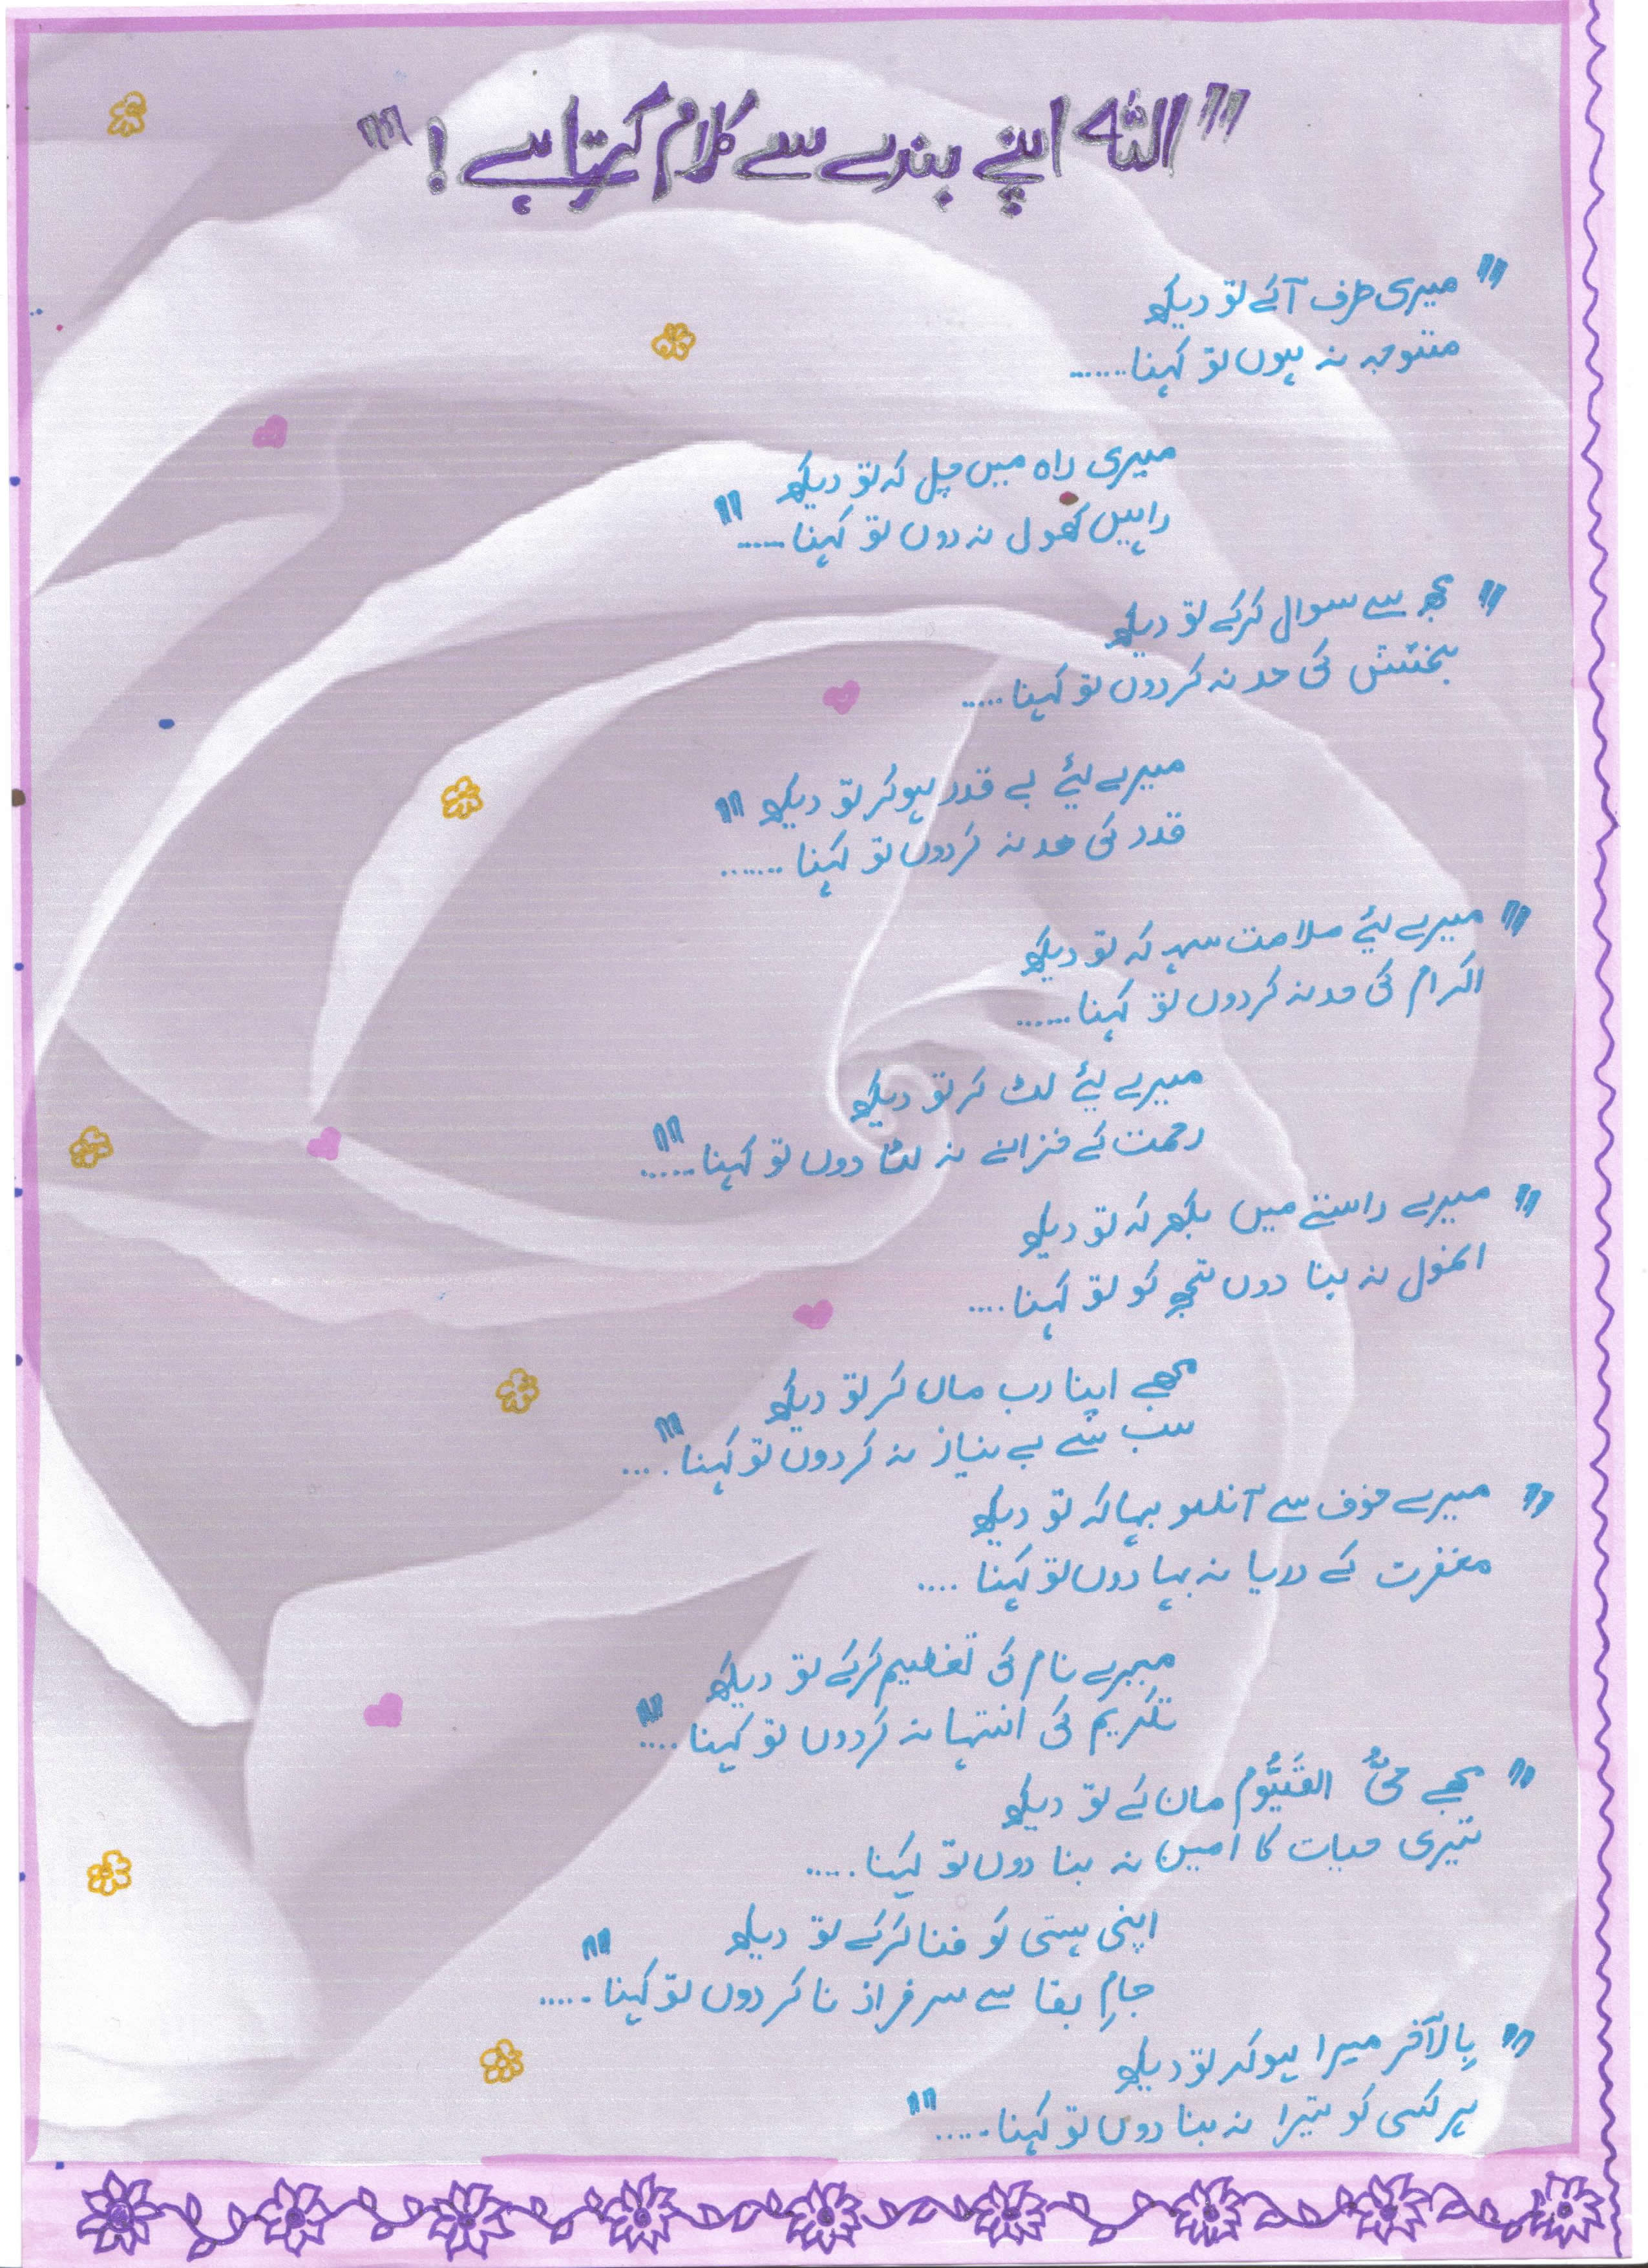 "اللہ اپنے بندے سے کلام کرتا ہے!"
"میری طرف آکے تو دیکھ
متوجہ نہ ہوں تو کہنا.......
میری راہ میں چل کہ تو دیکھ
راہیں کھول نہ دوں تو کہنا......"
"مجھ سے سوال کرکے تو دیکھ
بخشش کی حد نہ کردوں تو کہنا.....
میرے لیئے بے قدر ہوکر تو دیکھ"
قدر کی حد نہ کردوں تو کہنا.......
"میرے لیئے ملامت سہہ کہ تو دیکھ
اکرام کی حد نہ کردوں تو کہنا......
میرے لیئے لٹ کر تو دیکھ
رحمت کے خزانے نہ لٹا دوں تو کہنا......"
"میرے راستے میں بکھر کہ تو دیکھ
انمول نہ بنا دوں تجھ کو تو کہنا....
مجھے اپنا رب مان کر تو دیکھ
سب سے بے نیاز نہ کردوں تو کہنا...."
"میرے خوف سے آنسو بہا کہ تو دیکھ
مغفرت کے دریا نہ بہا دوں تو کہنا....
میرے نام کی تعظیم کرکے تو دیکھ
تکریم کی انتہا نہ کردوں تو کہنا...."
"مجھے حیُّ القَیُّوم مان کے تو دیکھ
تیری حیات کا امین نہ بنا دوں تو کہنا.....
اپنی ہستی کو فنا کرکے تو دیکھ
جامِ بقا سے سرفراز نا کردوں تو کہنا......"
"بِالآخر میرا ہوکر تو دیکھ
ہر کسی کو تیرا نہ بنا دوں تو کہنا......"